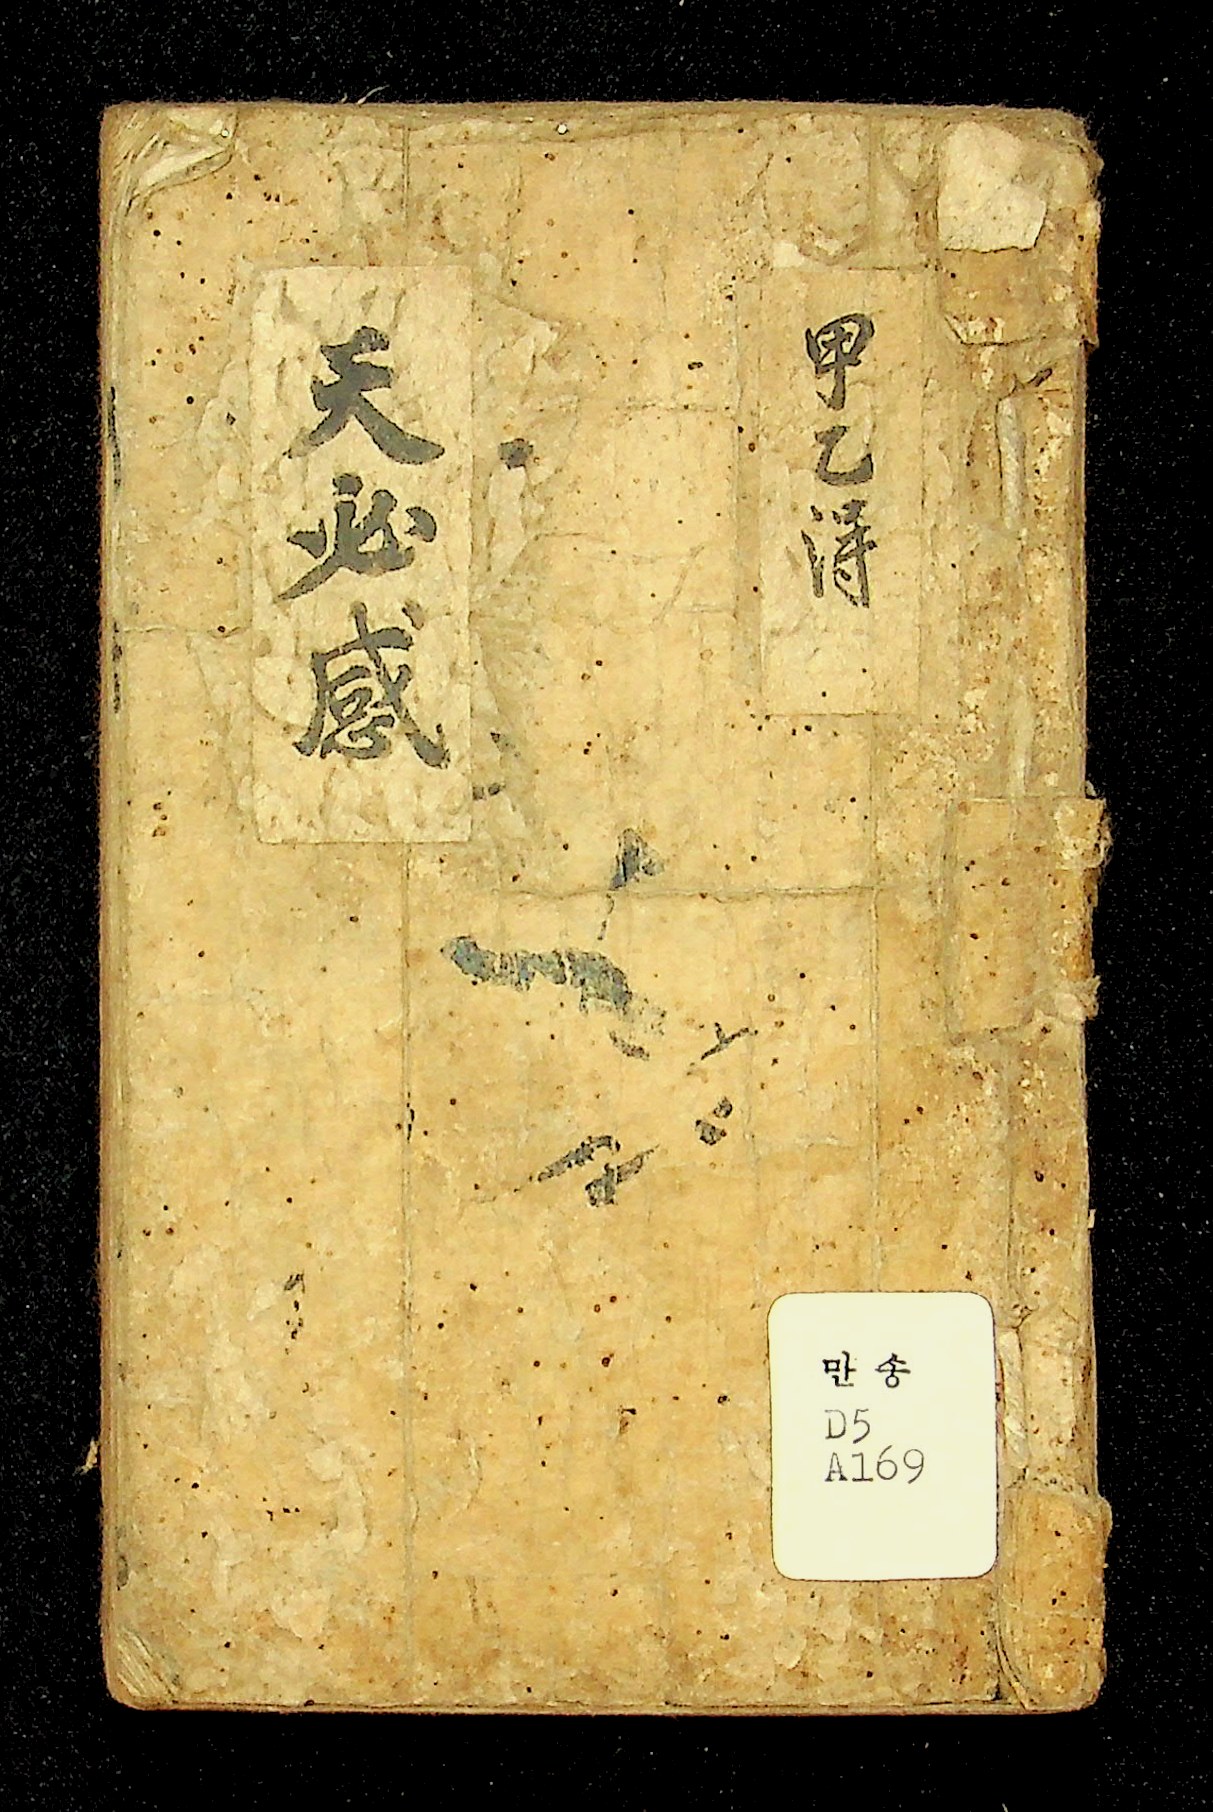 甲乙淂
天必感
만송
D5
A169